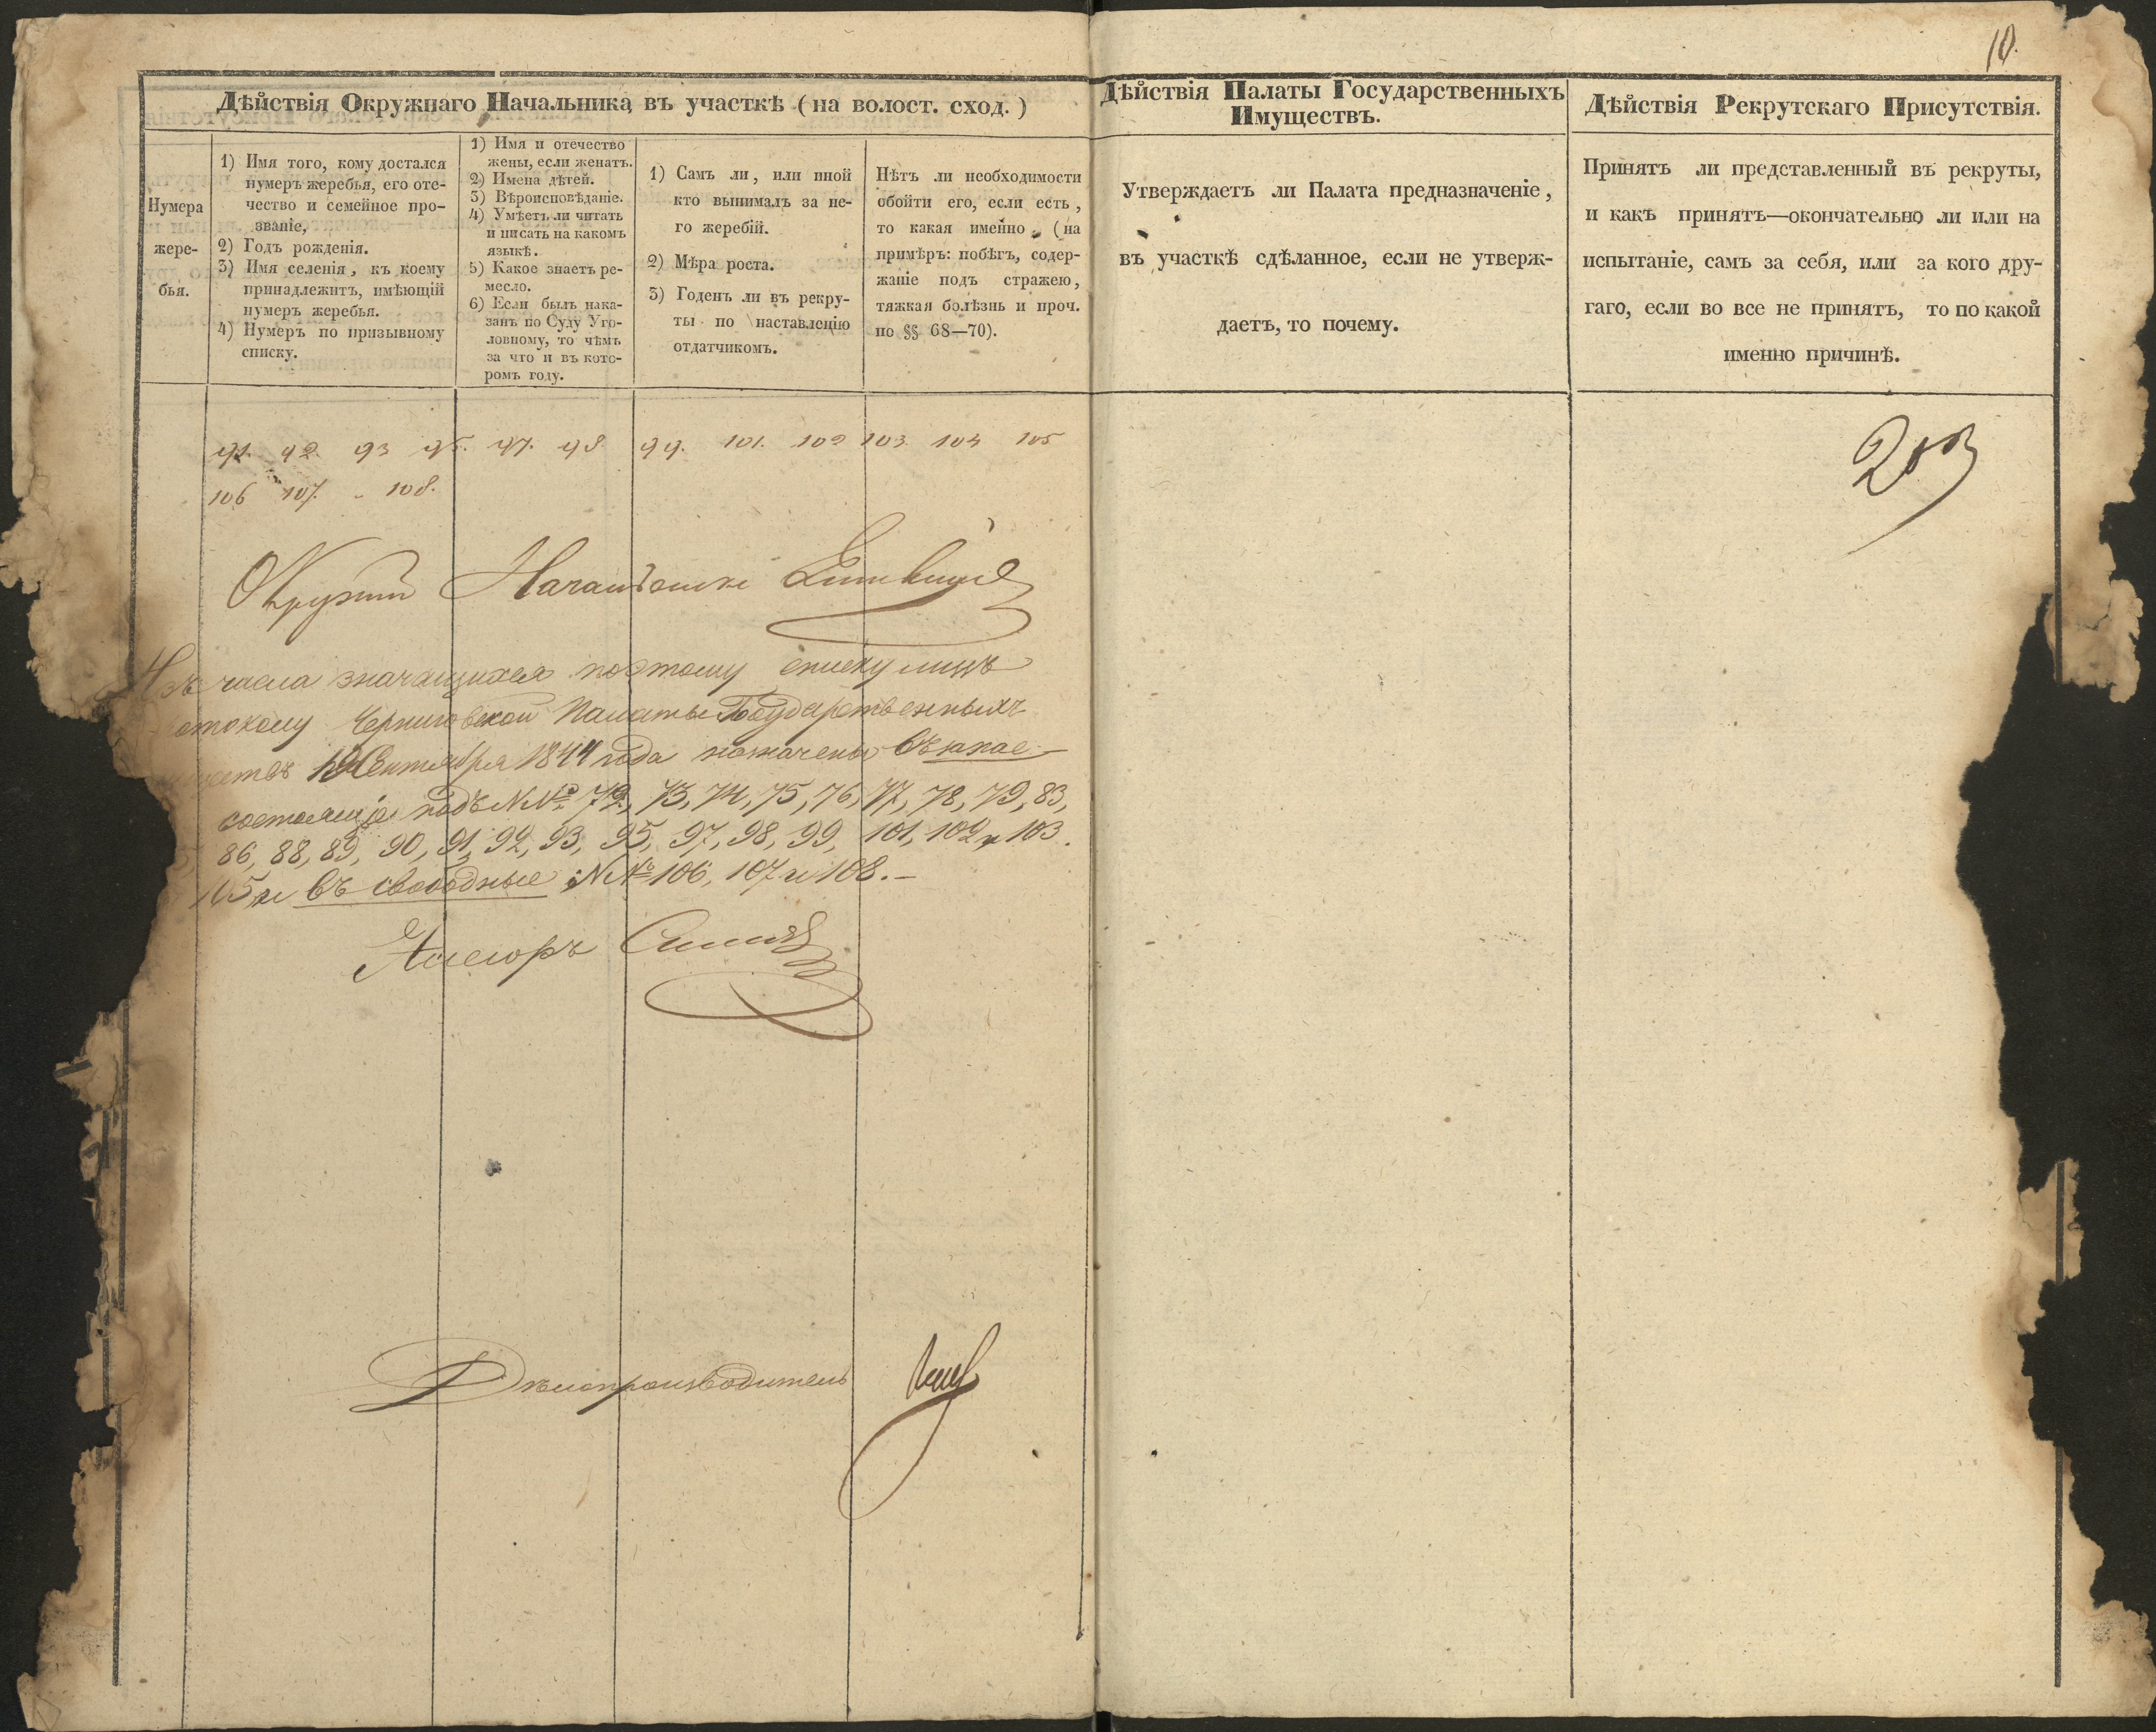 10.
Дѣйствія Окружнаго Начальника въ участкѣ (на волост. сход.)
Нумера
жере-
бья.
1) Имя того, кому достался
нумеръ жеребья, его оте-
чество и семейное про-
званіе,
2) Годъ рожденія.
3) Имя селенія, къ коему
принадлежитъ, имѣющій
нумеръ жеребья.
4) Нумеръ по призывному
списку.
1) Имя и отечество
жены, если женатъ.
2) Имена дѣтей.
3) Вѣроисповѣданіе.
4) Умѣетъ ли читать
и писать на какомъ
языкѣ.
5) Какое знаетъ ре-
месло.
6) Если былъ нака-
занъ по Суду Уго-
ловному, то чѣмъ
за что и въ кото-
ромъ году.
1) Самъ ли, или иной
кто вынималъ за не-
го жеребій.
2) Мѣра роста.
3) Годенъ ли въ рекру-
ты по наставленію
отдатчикомъ.
Нѣтъ ли необходимости
обойти его, если есть,
то какая именно (на
примѣръ: побѣгъ, содер-
жаніе подъ стражею,
тяжкая болѣзнь и проч.
по §§ 68—70).
Дѣйствія Палаты Государственныхъ
Имуществъ.
Утверждаетъ ли Палата предназначеніе,
въ участкѣ сдѣланное, если не утверж-
даетъ, то почему.
Дѣйствія Рекрутскаго Присутствія.
Принятъ ли представленный въ рекруты,
и какъ принятъ—окончательно ли или на
испытаніе, самъ за себя, или за кого дру-
гаго, если во все не принятъ, то по какой
именно причинѣ.
91. 92. 93 95. 97. 98 99. 101. 102 103. 104 105
106 107. 108.
Окружный Начальникъ
Изъ числа значащихся поэтому списку лицъ
Черниговской Палаты Государственныхъ
19 Сентября 1844 года назначены въ запас-
состоящіе подъ №№ 72, 73, 74, 75, 76, 77, 78, 79, 83,
86, 88, 89, 90, 91, 92, 93, 95, 97, 98, 99, 101, 102 и 103.
105 и въ свободные №№ 106, 107 и 108.—
Асесоръ
Дѣлопроизводитель